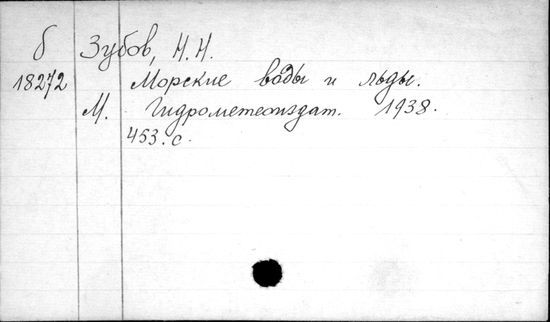 б Зубов, Н.Н.
18272 Морские воды и льды.
М. Гидрометеоиздат. 1938.
453. с.